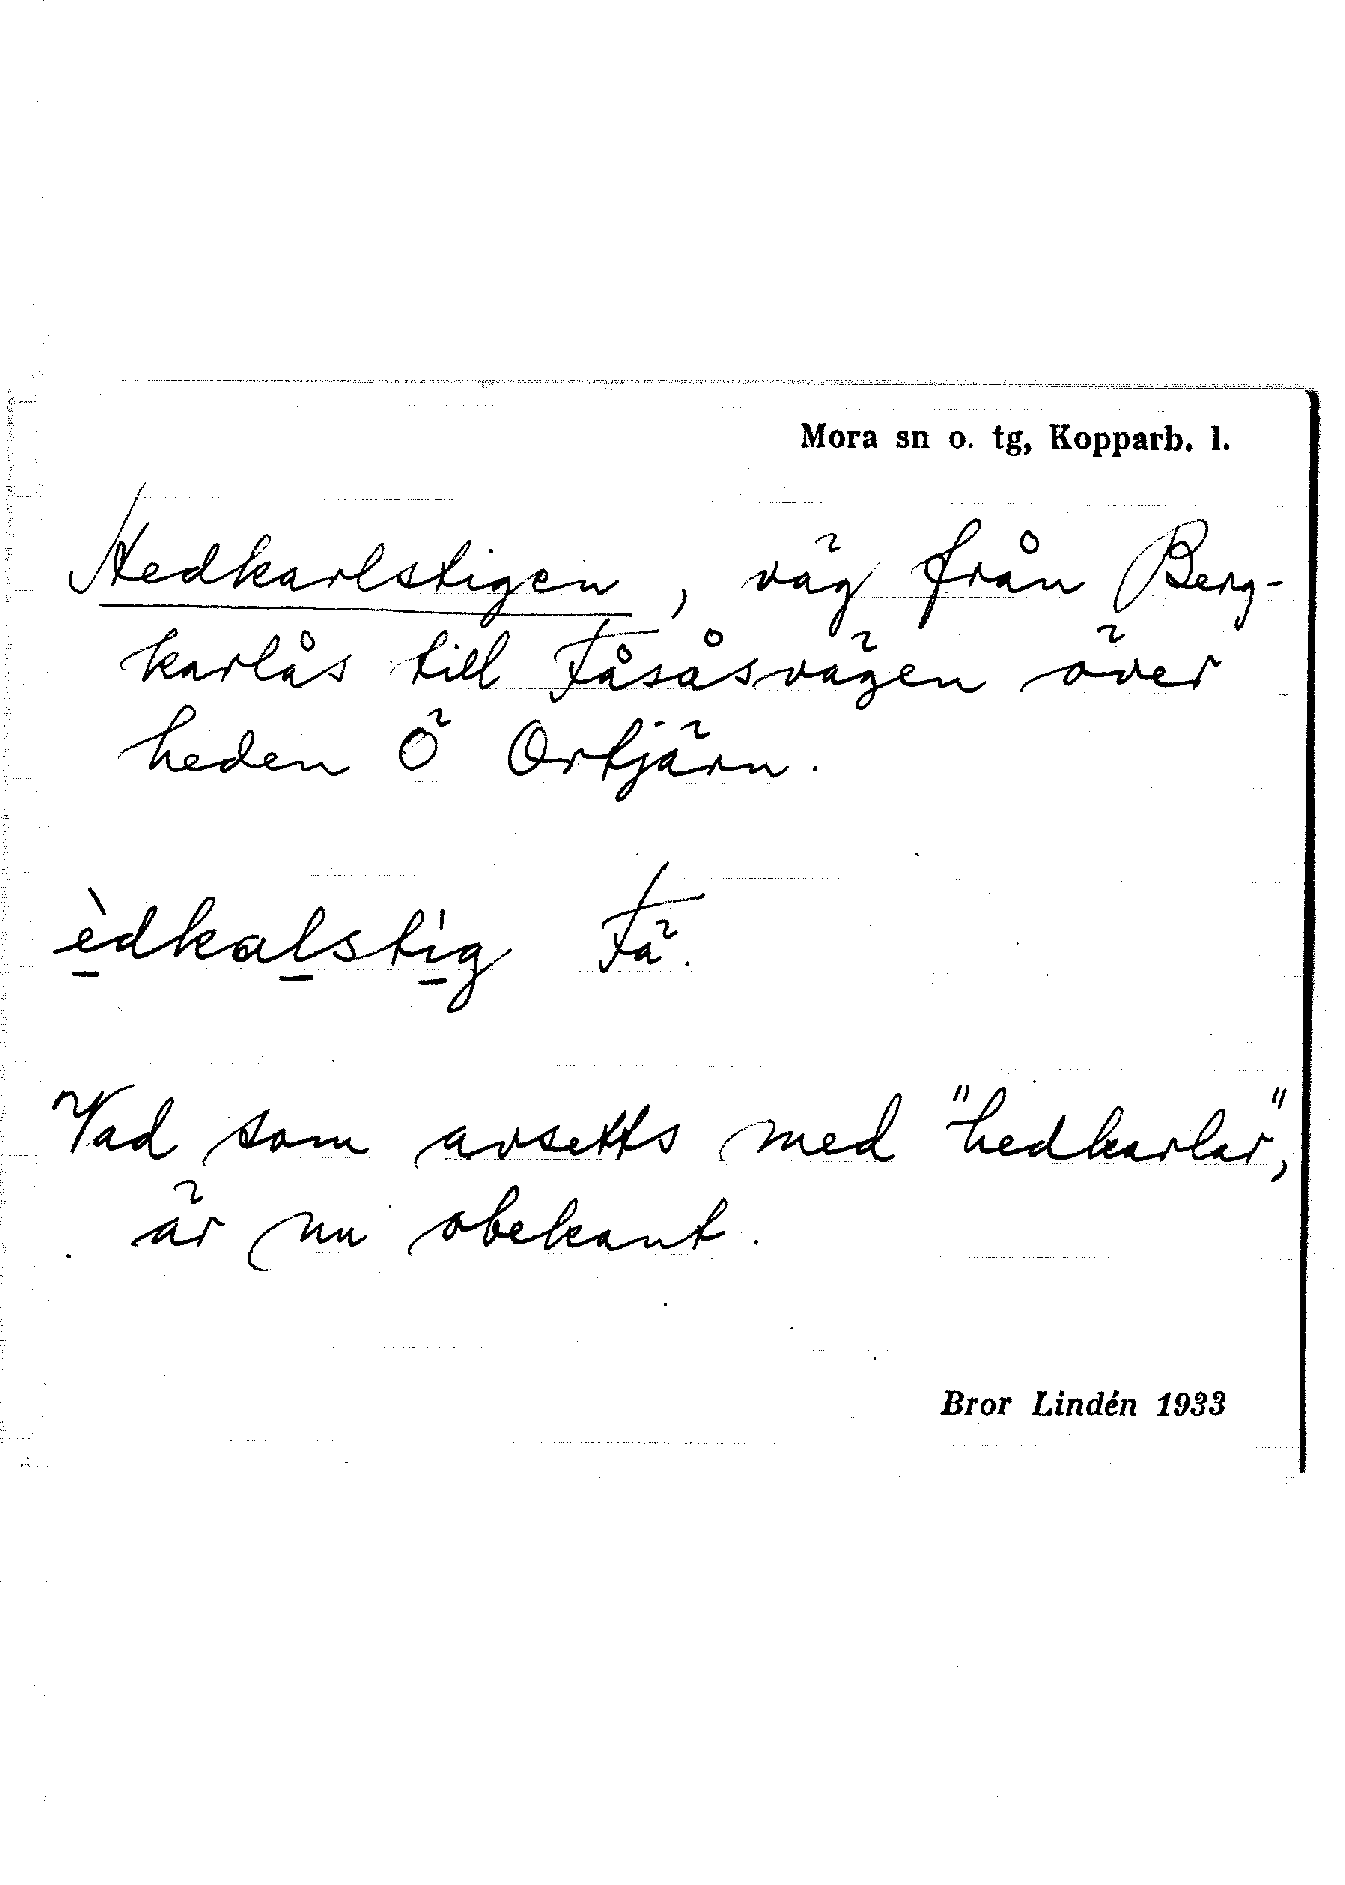 Mora sn o. tg, Kopparb. l.
Hedkarlstigen, väg från Berg-
karlås till Fåsåsvägen över
heden Ö Ortjärn.
èdkalstig Fä.
Vad som avsetts med "hedkarlar",
är nu obekant.
Bror Lindén 1933